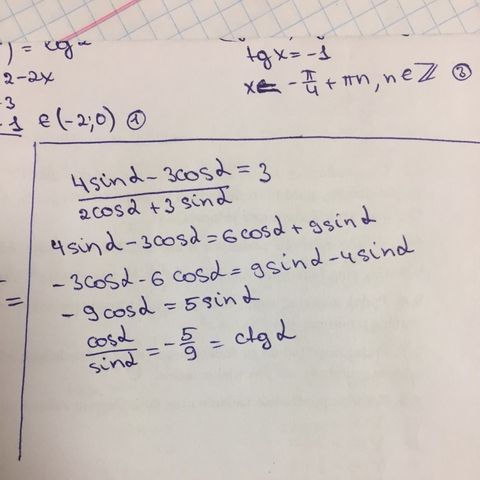 ) = ctgα
tg x = -1
2-2x
x∈ -π/4 + πn, n∈ℤ ③
-3
-1 ∈(-2;0) ①
(4sinα - 3cosα)/(2cosα + 3sinα) = 3
4sinα - 3cosα = 6cosα + 9sinα
-3cosα - 6cosα = 9sinα - 4sinα
-9cosα = 5sinα
cosα/sinα = -5/9 = ctgα
=